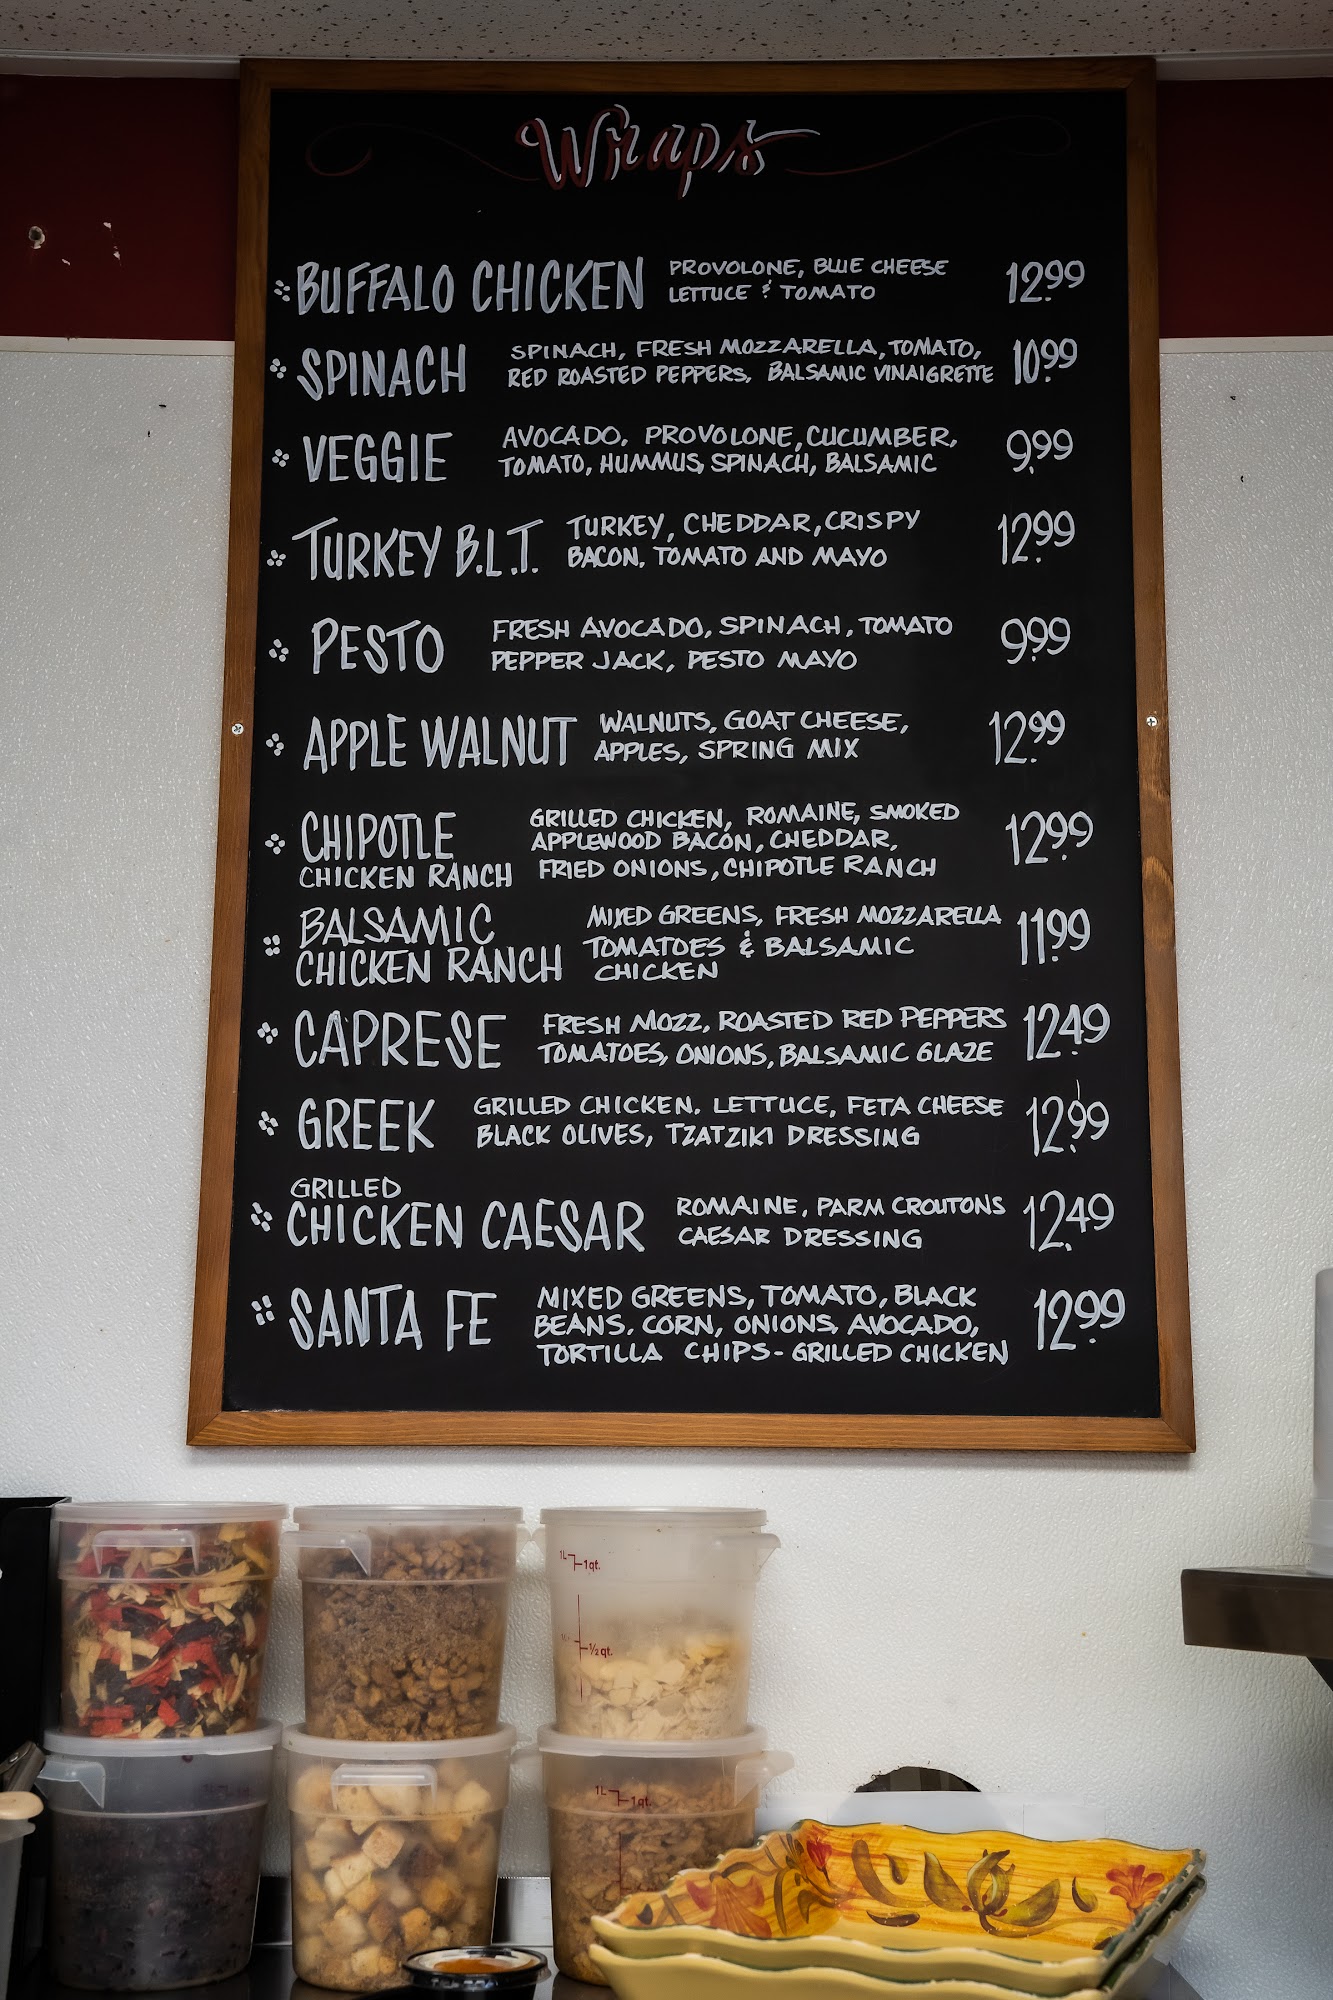 Wraps
BUFFALO CHICKEN PROVOLONE, BLUE CHEESE 12.99
LETTUCE & TOMATO
SPINACH SPINACH, FRESH MOZZARELLA, TOMATO, 10.99
RED ROASTED PEPPERS, BALSAMIC VINAIGRETTE
VEGGIE AVOCADO, PROVOLONE, CUCUMBER, 9.99
TOMATO, HUMMUS, SPINACH, BALSAMIC
TURKEY B.L.T. TURKEY, CHEDDAR, CRISPY 12.99
BACON, TOMATO AND MAYO
PESTO FRESH AVOCADO, SPINACH, TOMATO 9.99
PEPPER JACK, PESTO MAYO
APPLE WALNUT WALNUTS, GOAT CHEESE, 12.99
APPLES, SPRING MIX
CHIPOTLE GRILLED CHICKEN, ROMAINE, SMOKED 12.99
APPLEWOOD BACON, CHEDDAR,
CHICKEN RANCH FRIED ONIONS, CHIPOTLE RANCH
BALSAMIC MIXED GREENS, FRESH MOZZARELLA 11.99
CHICKEN RANCH TOMATOES & BALSAMIC
CHICKEN
CAPRESE FRESH MOZZ, ROASTED RED PEPPERS 12.49
TOMATOES, ONIONS, BALSAMIC GLAZE
GREEK GRILLED CHICKEN, LETTUCE, FETA CHEESE 12.99
BLACK OLIVES, TZATZIKI DRESSING
GRILLED
CHICKEN CAESAR ROMAINE, PARM CROUTONS 12.49
CAESAR DRESSING
SANTA FE MIXED GREENS, TOMATO, BLACK 12.99
BEANS, CORN, ONIONS, AVOCADO,
TORTILLA CHIPS - GRILLED CHICKEN
1L 1qt.
½ qt.
1L 1qt.